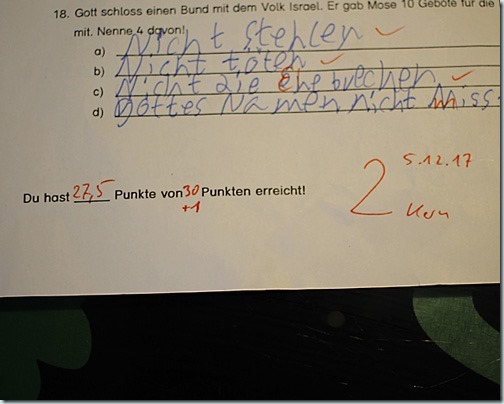 18. Gott schloss einen Bund mit dem Volk Israel. Er gab Mose 10 Gebote für die
mit. Nenne 4 davon!
a) Nicht stehlen ✓
b) Nicht töten ✓
c) Nicht die Ehe brechen ✓
d) Gottes Namen nicht Miss-
Du hast 27,5 Punkte von 30 Punkten erreicht!
+1
5.12.17
2